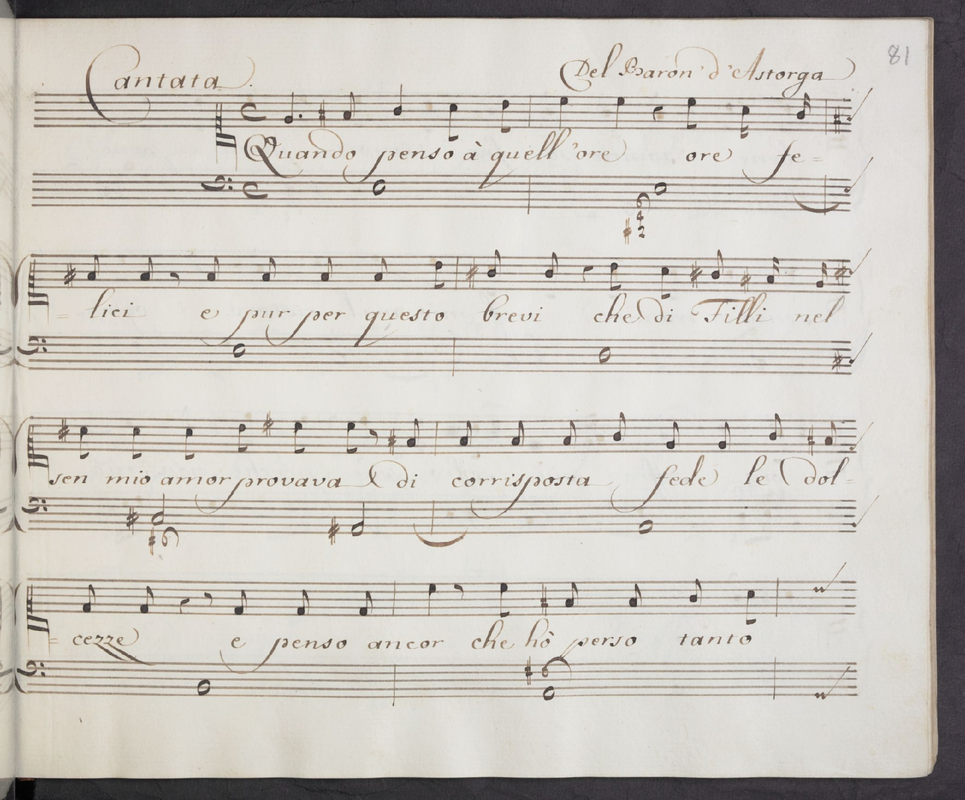 Cantata. Del Baron d'Astorga 81
Quando penso à quell'ore ore fe=
6
4
2
=lici e pur per questo brevi che di Filli nel
sen mio amor provava e di corrisposta fede le dol=
6
=cezze e penso ancor che hò perso tanto
6